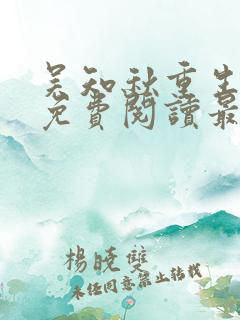 吴知秋重生
免費閱讀最
楊曉雙
未经同意禁止转载